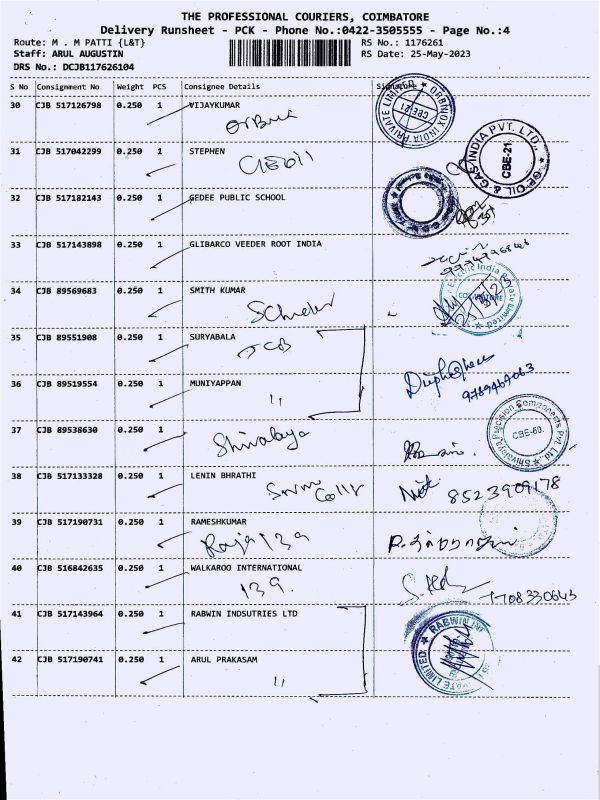 THE PROFESSIONAL COURIERS, COIMBATORE
Delivery Runsheet - PCK - Phone No.:0422-3505555 - Page No.:4
Route: M . M PATTI {L&T} RS No.: 1176261
Staff: ARUL AUGUSTIN RS Date: 25-May-2023
DRS No.: DCJB117626104
S No Consignment No Weight PCS Consignee Details Signature
30 CJB 517126798 0.250 1 VIJAYKUMAR
ORBNOX INDIA PRIVATE LIMITED CBE-21
31 CJB 517042299 0.250 1 STEPHEN
GE OIL & GAS INDIA PVT. LTD., CBE-21
32 CJB 517182143 0.250 1 GEDEE PUBLIC SCHOOL
33 CJB 517143898 0.250 1 GLIBARCO VEEDER ROOT INDIA
34 CJB 89569683 0.250 1 SMITH KUMAR
Electric India Private Limited
35 CJB 89551908 0.250 1 SURYABALA
JCB
36 CJB 89519554 0.250 1 MUNIYAPPAN
"
9789469063
37 CJB 89538630 0.250 1
Shivalaya
Shivalaya Precision Components Pvt. Ltd. CBE-60.
38 CJB 517133328 0.250 1 LENIN BHRATHI
8523909178
39 CJB 517190731 0.250 1 RAMESHKUMAR
40 CJB 516842635 0.250 1 WALKAROO INTERNATIONAL
139.
7708330645
41 CJB 517143964 0.250 1 RABWIN INDSUTRIES LTD
RABWIN PRIVATE LIMITED
42 CJB 517190741 0.250 1 ARUL PRAKASAM
"